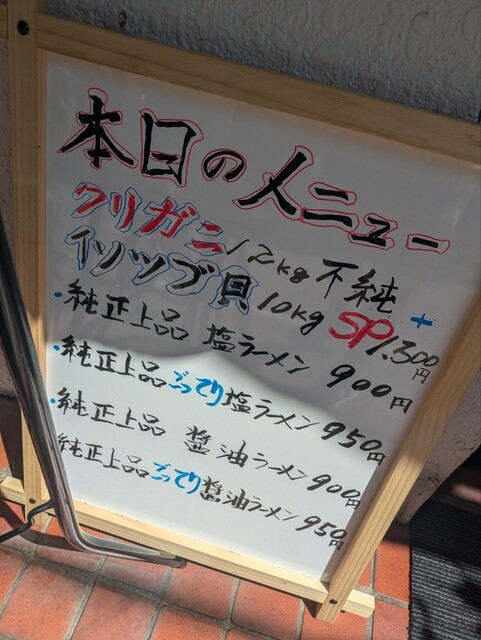 本日のメニュー
クリガニ12kg 不純 +
イソツブ貝10kg SP1.300円
・純正上品 塩ラーメン 900円
・純正上品こってり塩ラーメン 950円
・純正上品 醤油ラーメン 900円
純正上品こってり醤油ラーメン 950円